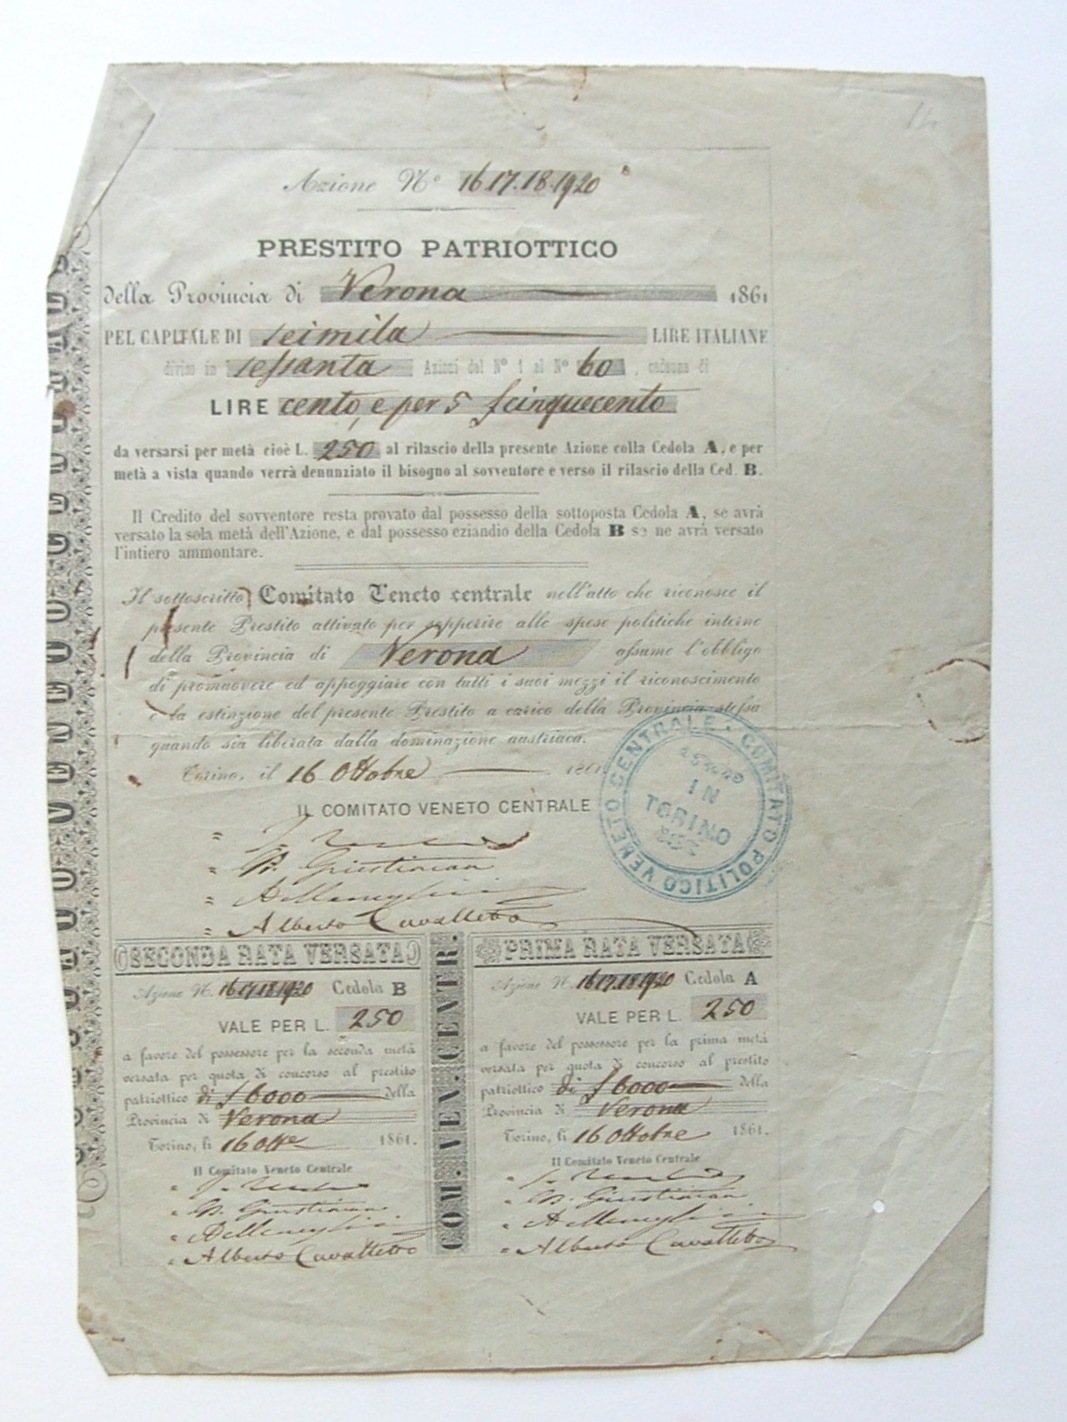 Azione Nº 16.17.18.19.20
PRESTITO PATRIOTTICO
della Provincia di Verona 1861
PEL CAPITALE DI seimila LIRE ITALIANE
diviso in sessanta Azioni del Nº 1 al Nº 60, cadauna di
LIRE cento, e per 5 £ cinquecento
da versarsi per metà cioè L. 250 al rilascio della presente Azione colla Cedola A, e per
metà a vista quando verrà denunziato il bisogno al sovventore e verso il rilascio della Ced. B.
Il Credito del sovventore resta provato dal possesso della sottoposta Cedola A, se avrà
versato la sola metà dell'Azione, e dal possesso eziandio della Cedola B se ne avrà versato
l'intiero ammontare.
Il sottoscritto Comitato Veneto centrale nell'atto che riconosce il
presente Prestito attivato per sopperire alle spese politiche interne
della Provincia di Verona assume l'obbligo
di promuovere ed appoggiare con tutti i suoi mezzi il riconoscimento
e la estinzione del presente Prestito a carico della Provincia stessa
quando sia liberata dalla dominazione austriaca.
Torino, il 16 Ottobre 1861
IL COMITATO VENETO CENTRALE
COMITATO POLITICO VENETO CENTRALE
IN
TORINO
" G. Giustinian
"
" Alberto Cavalletto
SECONDA RATA VERSATA
Azione N. 16.17.18.19.20 Cedola B
VALE PER L. 250
a favore del possessore per la seconda metà
versata per quota di concorso al prestito
patriottico di £ 6000 della
Provincia di Verona
Torino, li 16 Ottre 1861.
Il Comitato Veneto Centrale
" G. Giustinian
"
" Alberto Cavalletto
COM. VEN. CENTR.
PRIMA RATA VERSATA
Azione N. 16.17.18.19.20 Cedola A
VALE PER L. 250
a favore del possessore per la prima metà
versata per quota di concorso al prestito
patriottico di £ 6000 della
Provincia di Verona
Torino, li 16 Ottobre 1861.
Il Comitato Veneto Centrale
" G. Giustinian
"
" Alberto Cavalletto